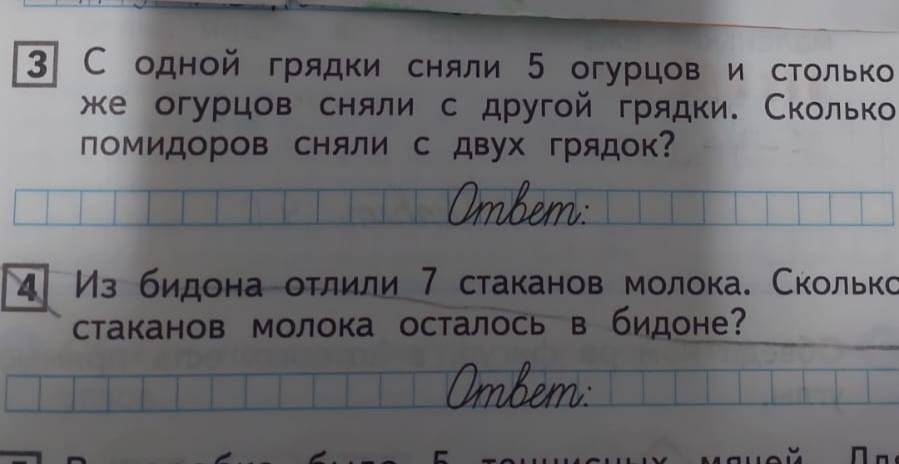 3 С одной грядки сняли 5 огурцов и столько
же огурцов сняли с другой грядки. Сколько
помидоров сняли с двух грядок?
Ответ:
4 Из бидона отлили 7 стаканов молока. Сколько
стаканов молока осталось в бидоне?
Ответ:
5 теннисных мячей.